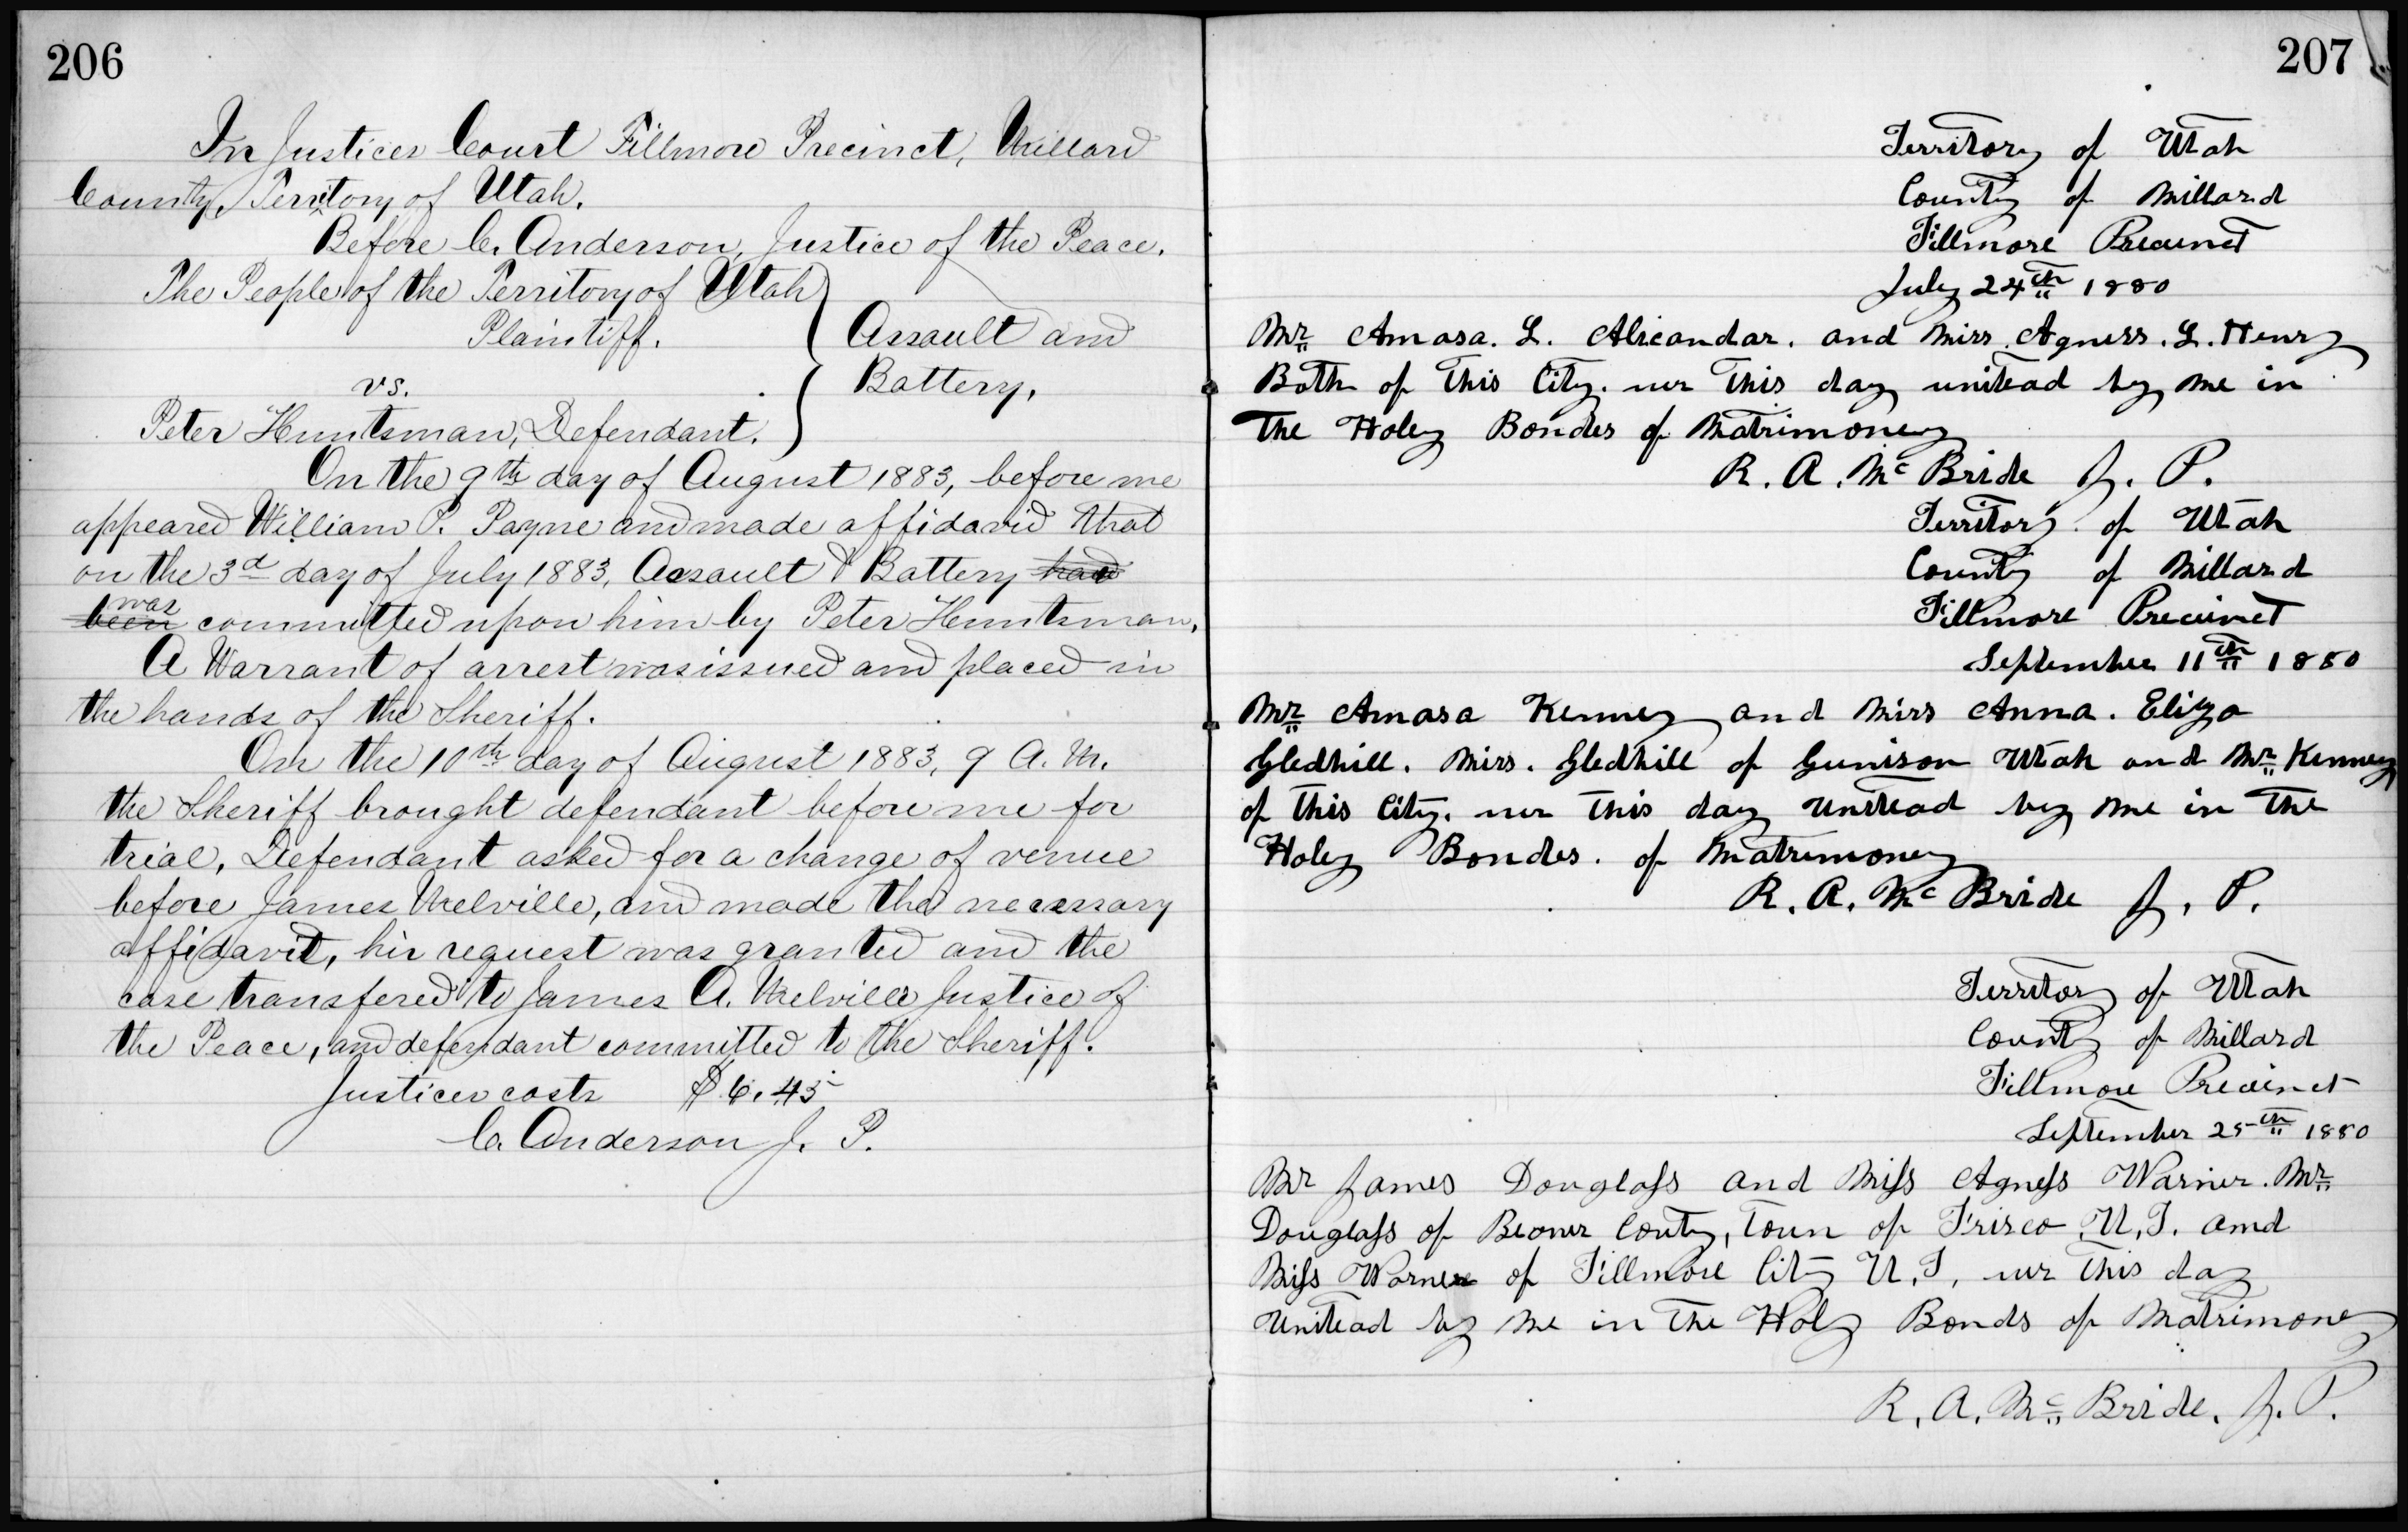 206
In Justices Court Fillmore Precinct, Millard
County, Territory of Utah.
Before C. Anderson, Justice of the Peace.
The People of the Territory of Utah
Plaintiff.
vs.
Peter Huntsman, Defendant.
Assault and
Battery,
On the 9th day of August 1883, before me
appeared William P. Payne and made affidavid that
on the 3d day of July 1883, Assault & Battery had
been was committed upon him by Peter Huntsman,
A Warrant of arrest was issued and placed in
the hands of the Sheriff.
On the 10th day of August 1883, 9 A. M.
the Sheriff brought defendant before me for
trial, Defendant asked for a change of venue
before James Melville, and made the necessary
affidavit, his request was granted and the
case transfered to James A. Melville Justice of
the Peace, and defendant committed to the Sheriff.
Justices costs $6.45
C. Anderson J. P.
207
Territory of Utah
County of Millard
Fillmore Precinct
July 24th 1880
Mr Amasa. L. Alicandar. and Miss. Agness. L. Henry
Both of This City. wer This day unitead by me in
The Holey Bondes of Matrimoney
R. A. Mc Bride J. P.
Territory of Utah
County of Millard
Fillmore Precinct
September 11th 1880
Mr Amasa Kenney and Miss Anna. Eliza
Gledhill. Miss. Gledhill of Gunison Utah and Mr Kenney
of This City. wer This day Unitead by me in The
Holey Bondes. of Matrimoney
R. A. Mc Bride J. P.
Territory of Utah
County of Millard
Fillmore Precinct
September 25th 1880
Mr James Douglass and Miss Agness Warner. Mr
Douglass of Beaver Conty, Toun of Frisco U. T. and
Miss Warner of Fillmore City U. T, wer This day
Unitead by me in The Holy Bonds of Matrimoney
R. A. Mc Bride. J. P.